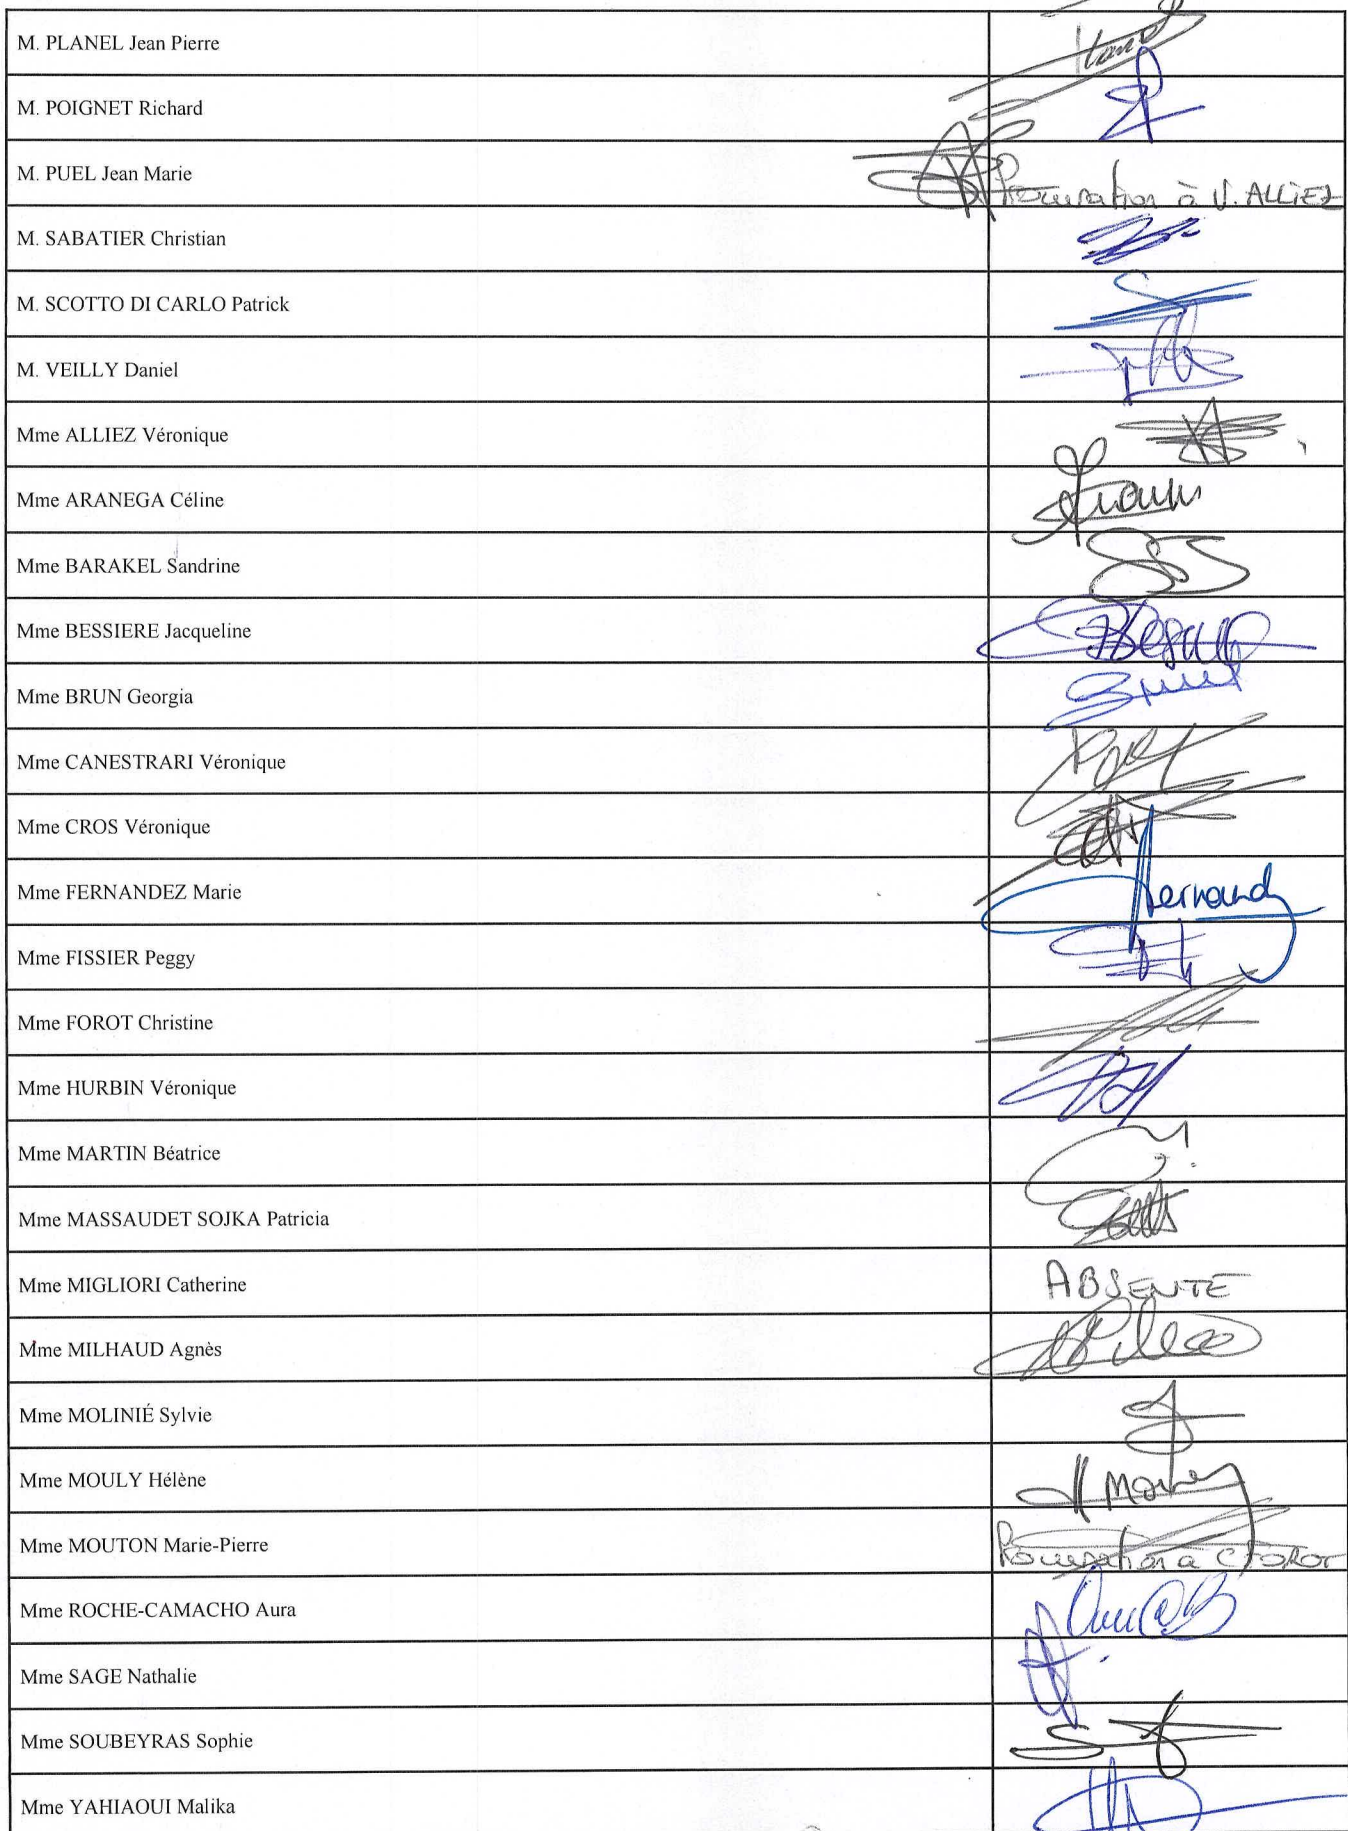 M. PLANEL Jean Pierre
M. POIGNET Richard
M. PUEL Jean Marie Procuration à V. ALLIEZ
M. SABATIER Christian
M. SCOTTO DI CARLO Patrick
M. VEILLY Daniel
Mme ALLIEZ Véronique
Mme ARANEGA Céline
Mme BARAKEL Sandrine
Mme BESSIERE Jacqueline
Mme BRUN Georgia
Mme CANESTRARI Véronique
Mme CROS Véronique
Mme FERNANDEZ Marie
Mme FISSIER Peggy
Mme FOROT Christine
Mme HURBIN Véronique
Mme MARTIN Béatrice
Mme MASSAUDET SOJKA Patricia
Mme MIGLIORI Catherine ABSENTE
Mme MILHAUD Agnès
Mme MOLINIÉ Sylvie
Mme MOULY Hélène
Mme MOUTON Marie-Pierre Procuration à C FOROT
Mme ROCHE-CAMACHO Aura
Mme SAGE Nathalie
Mme SOUBEYRAS Sophie
Mme YAHIAOUI Malika